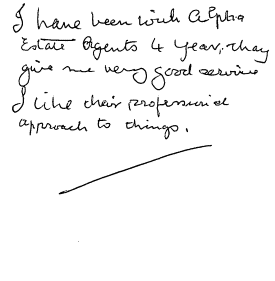 I have been with Alpha
Estate Agents 4 year, they
give me very good service
I like their professional
approach to things.